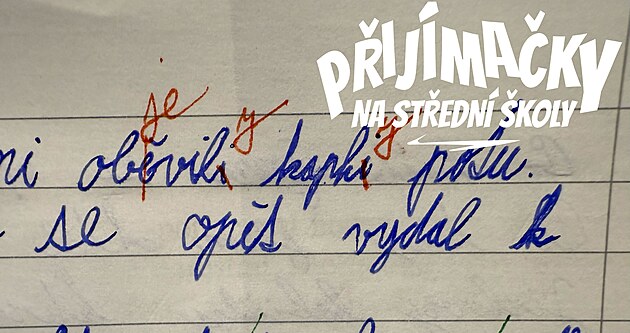 PŘIJÍMAČKY
NA STŘEDNÍ ŠKOLY
je y y
ni oběvili kapki potu.
se opět vydal k